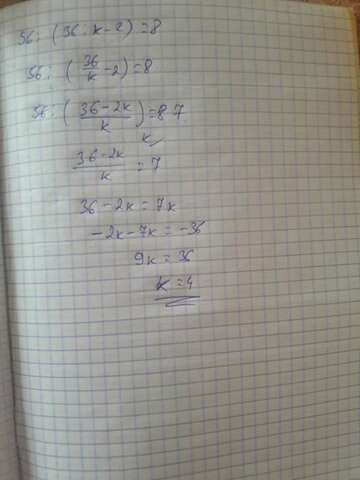 56:(36:k-2)=8
56:(36/k-2)=8
56:(36-2k/k)=8 7
k
36-2k/k=7
36-2k=7k
-2k-7k=-36
9k=36
k=4